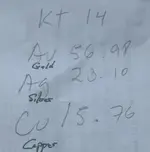 Kt 14
Au 56.98
Gold
Ag 23.10
Silver
Cu 15.76
Copper